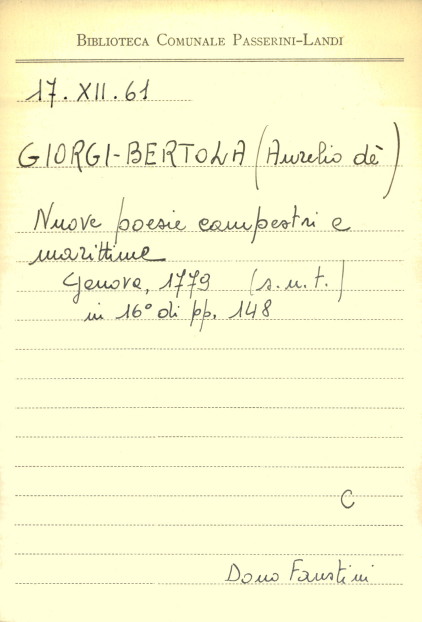 BIBLIOTECA COMUNALE PASSERINI-LANDI
17. XII. 61
GIORGI-BERTOLA (Aurelio dè)
Nuove poesie campestri e
marittime
Genova, 1779 (s.n.t.)
in 16° di pp. 148
C
Dono Faustini